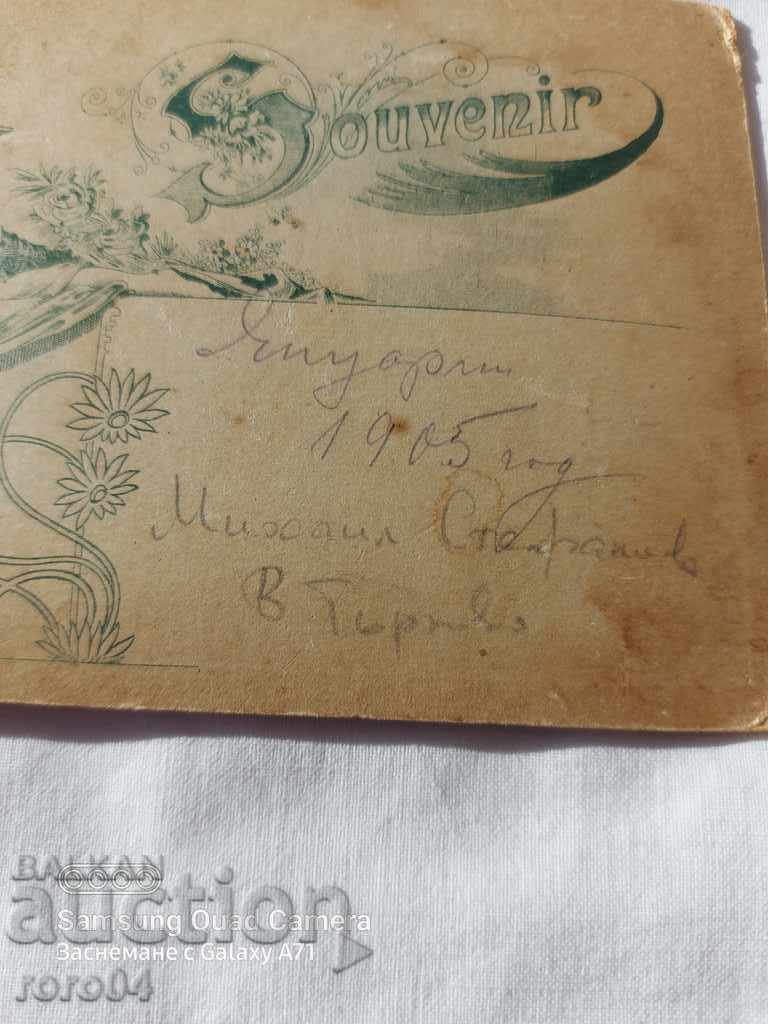 Souvenir
Януарий
1905 год
Михаил Стефанов
В Търново
BALKAN
auction
Samsung Quad Camera
Заснемане с Galaxy A71
roro04